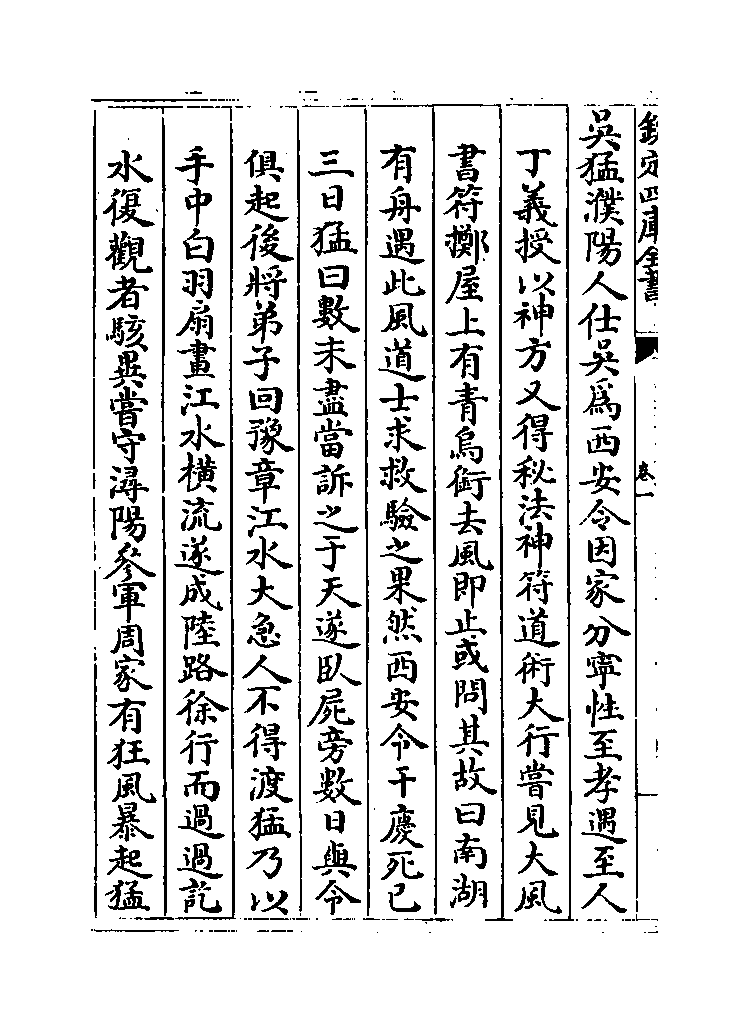 欽定四庫全書
卷一
吳猛濮陽人仕吳爲西安令因家分寧性至孝遇至人
丁義授以神方又得秘法神符道術大行嘗見大風
書符擲屋上有青烏銜去風即止或問其故曰南湖
有舟遇此風道士求救驗之果然西安令干慶死已
三日猛曰數未盡當訴之于天遂臥屍旁數日與令
俱起後將弟子回豫章江水大急人不得渡猛乃以
手中白羽扇畫江水橫流遂成陸路徐行而過過訖
水復觀者駭異嘗守潯陽參軍周家有狂風暴起猛